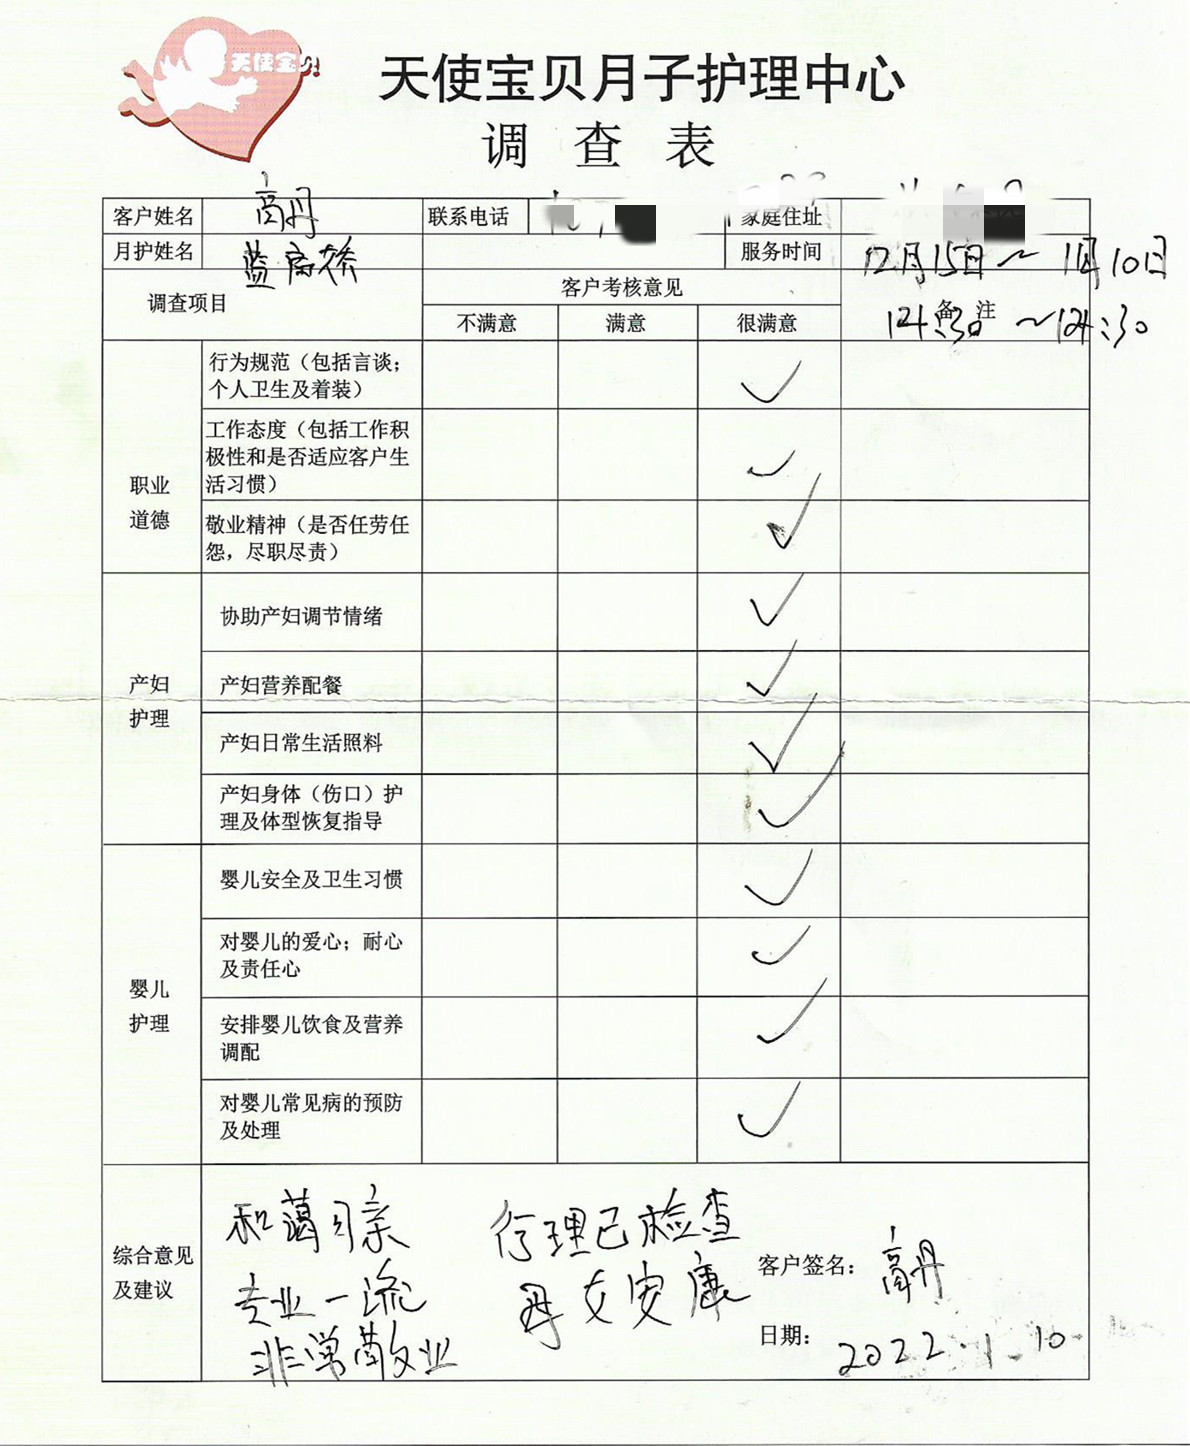 天使宝贝
天使宝贝月子护理中心
调查表
客户姓名 高丹 联系电话 家庭住址
月护姓名 服务时间 12月15日～1月10日
14:30～14:30
调查项目 客户考核意见 备注
不满意 满意 很满意
职业
道德
行为规范（包括言谈；
个人卫生及着装） ✓
工作态度（包括工作积
极性和是否适应客户生
活习惯） ✓
敬业精神（是否任劳任
怨，尽职尽责） ✓
产妇
护理
协助产妇调节情绪 ✓
产妇营养配餐 ✓
产妇日常生活照料 ✓
产妇身体（伤口）护
理及体型恢复指导 ✓
婴儿
护理
婴儿安全及卫生习惯 ✓
对婴儿的爱心；耐心
及责任心 ✓
安排婴儿饮食及营养
调配 ✓
对婴儿常见病的预防
及处理 ✓
综合意见
及建议
和蔼可亲
专业一流
非常敬业
行理已检查
母女安康
客户签名：高丹
日期：2022.1.10